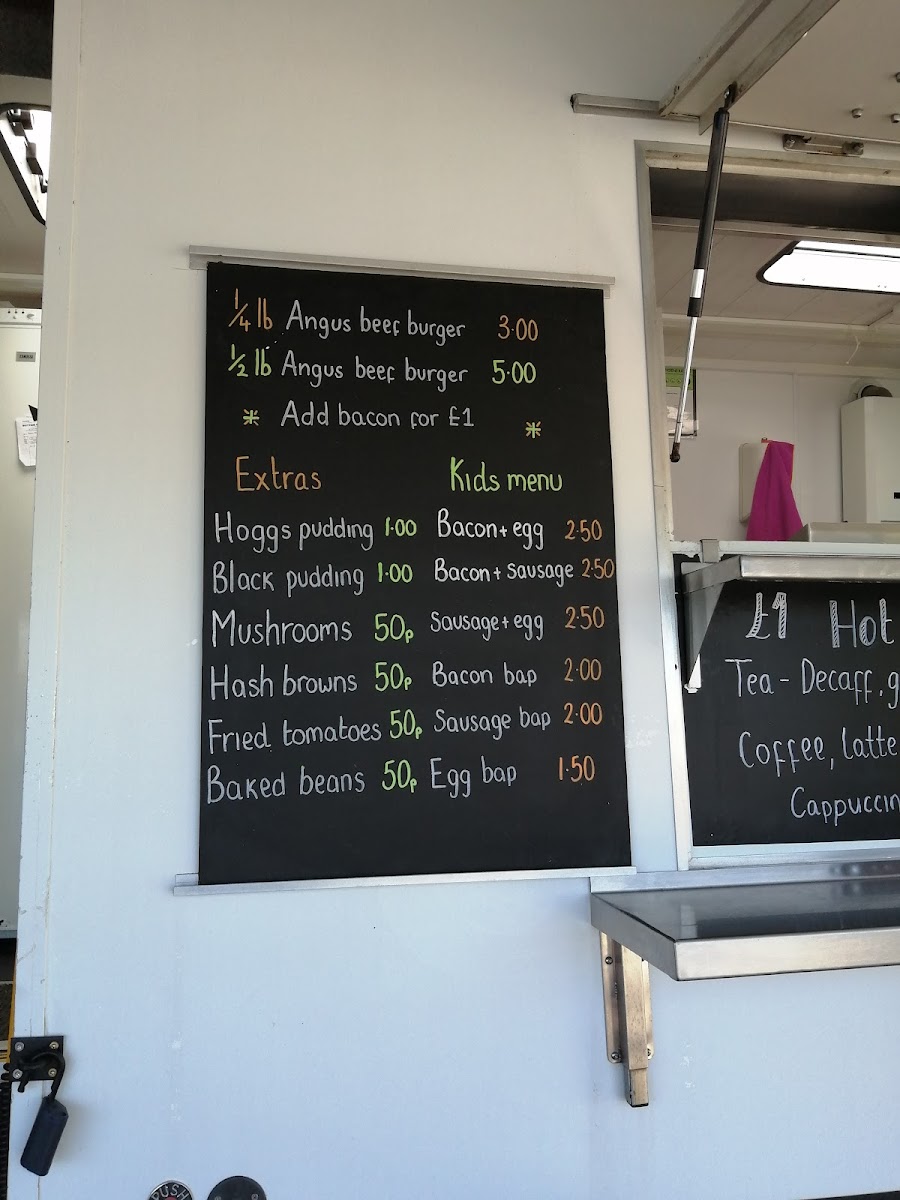 1/4 lb Angus beef burger 3.00
1/2 lb Angus beef burger 5.00
* Add bacon for £1 *
Extras
Hoggs pudding 1.00
Black pudding 1.00
Mushrooms 50p
Hash browns 50p
Fried tomatoes 50p
Baked beans 50p
Kids menu
Bacon + egg 2.50
Bacon + Sausage 2.50
Sausage + egg 2.50
Bacon bap 2.00
Sausage bap 2.00
Egg bap 1.50
£1 Hot
Tea - Decaff, g
Coffee, latte
Cappuccin
PUSH